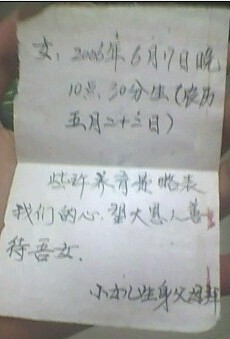 女，2006年6月17日晚
10点30分生（农历
五月二十二日）
些许养育费略表
我们的心，望大恩人善
待吾女．
小女儿生身父母拜